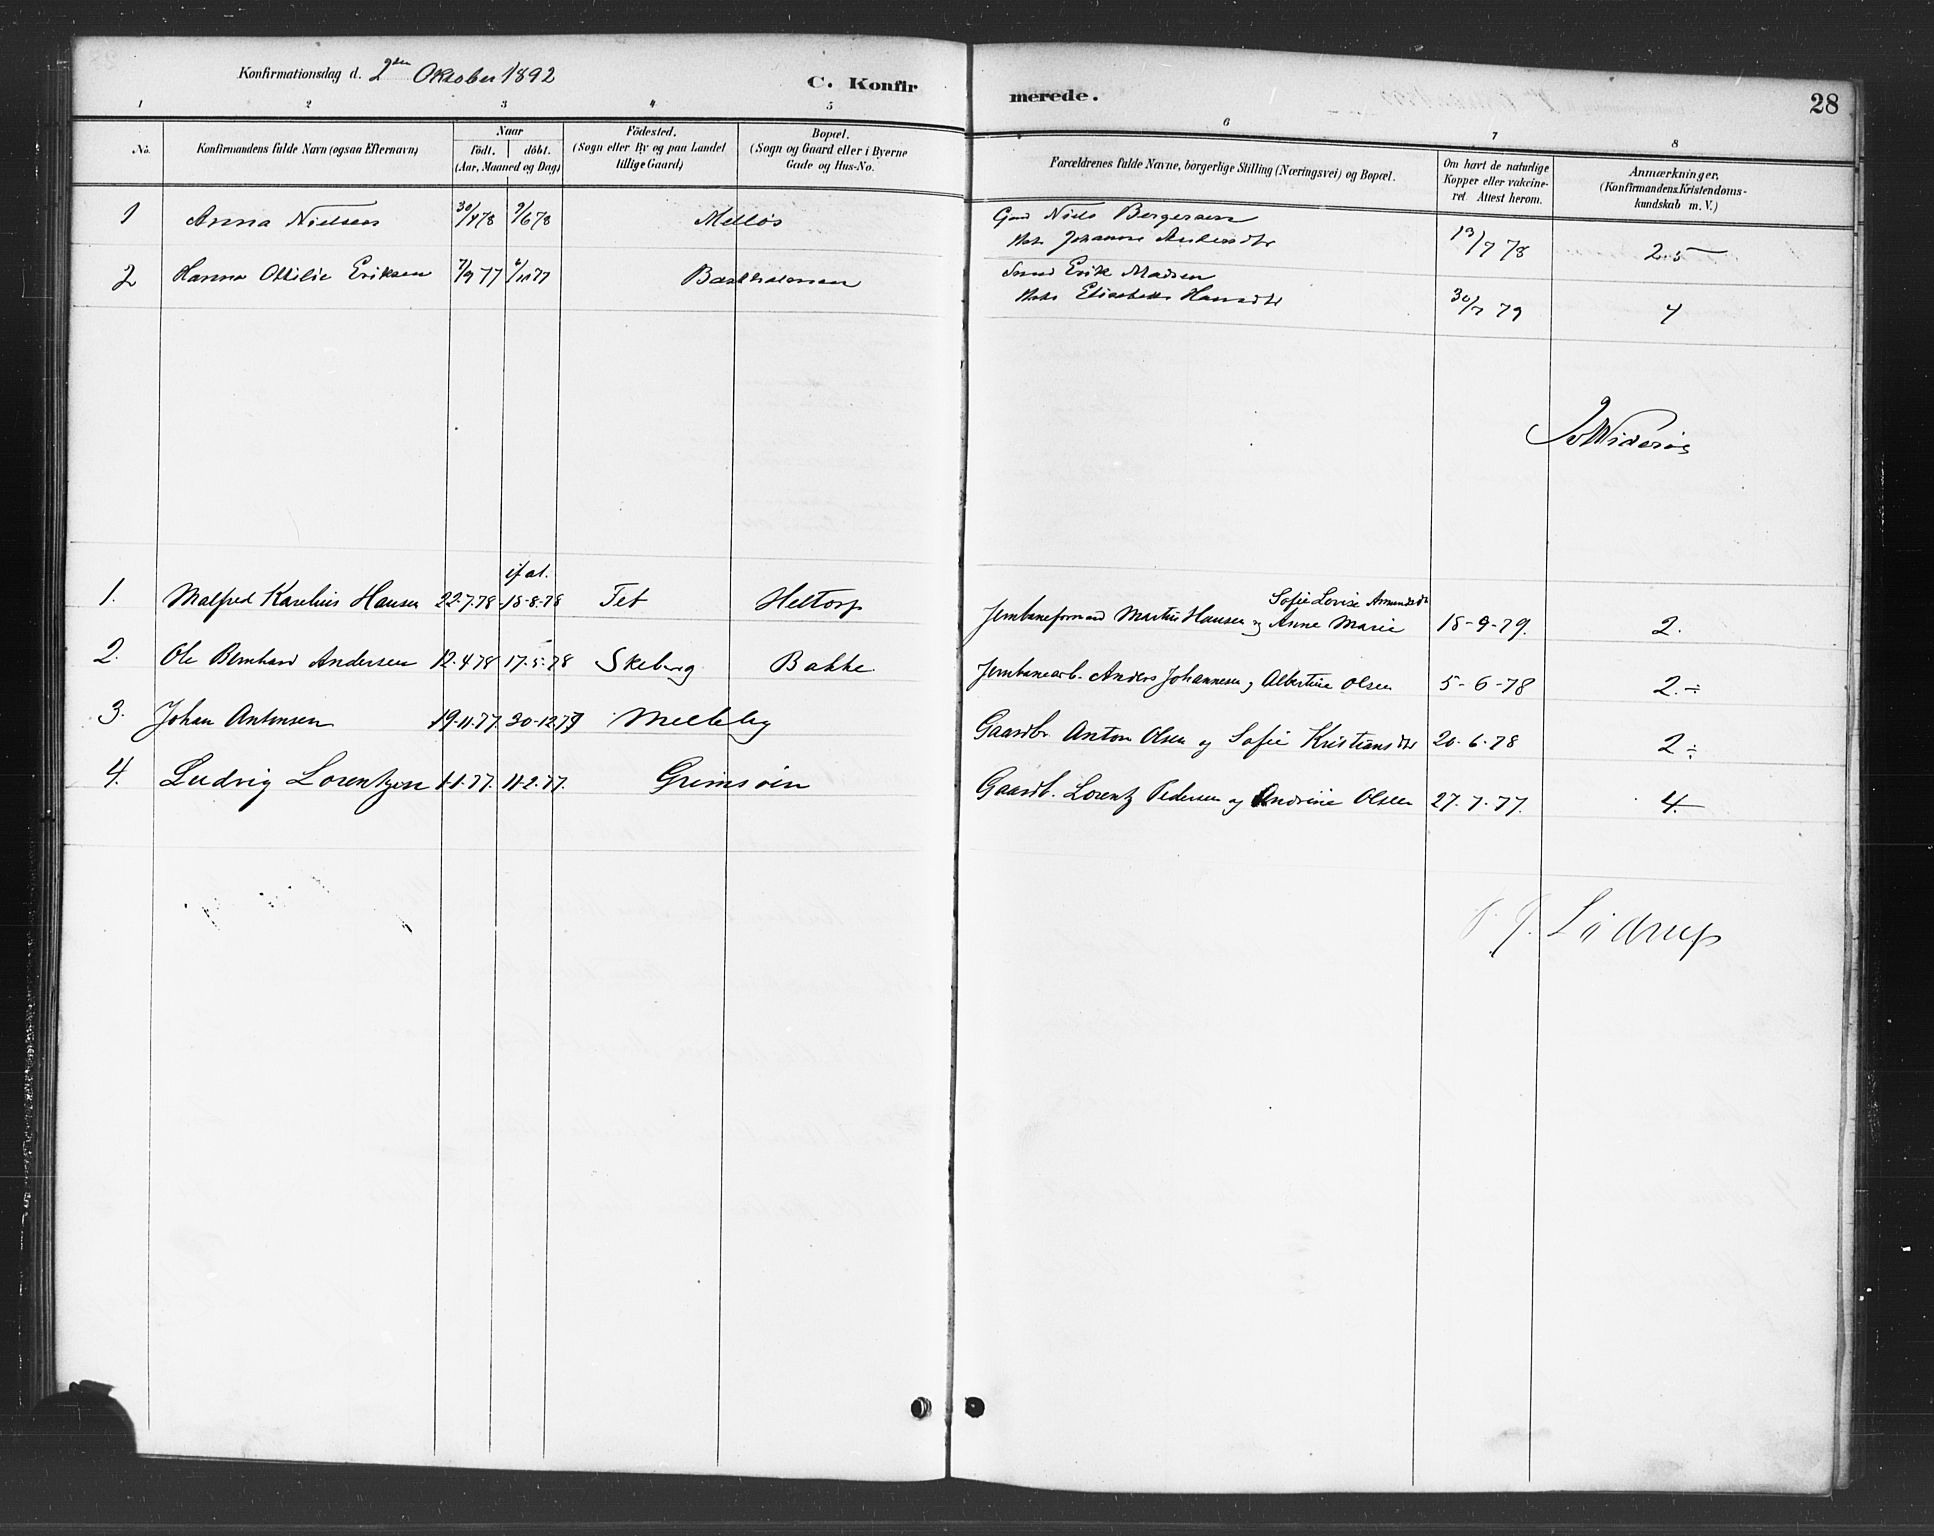 Konfirmationsdag d. 2den Oktober 1892
C. Konfir
merede.
28
1 2 3 4 5 6 7 8
No.
Konfirmandens fulde Navn (ogsaa Efternavn)
Naar
födt. döbt.
(Aar, Maaned og Dag)
Födested.
(Sogn eller By og paa Landet
tillige Gaard)
Bopæl.
(Sogn og Gaard eller i Byerne
Gade og Hus-No.
Forældrenes fulde Navne, borgerlige Stilling (Næringsvei) og Bopæl.
Om havt de naturlige
Kopper eller vakcine-
ret. Attest herom.
Anmærkninger.
(Konfirmandens Kristendoms-
kundskab m. V.)
1 Anna Nielsen 30/4 78 9/6 78 Melløs Niels Bergersen
Johanne 13/7 78 2.5
2 Hanna Ottilie Eriksen 7/9 77 Erik Madsen
Elisabeth Hansdtr 30/7 79 4
Widerøe
if at.
1. Malfred Karelius Hansen 22-7.78 18-8-78 Tet Heltorp Jernbaneformand Martin Hansen og Anne Marie
Sofie Lovise Amundsdtr
18-9-79. 2.
2. Ole Bernhard Andersen 12.4 78 17-5-78 Skeberg Bakke Jernbanearb. Anders Johannesen og Albertine Olsen 5-6-78 2.÷
3. Johan Antonsen 19.11.77. 30-12 77 Melleby Gaardbr. Anton Olsen og Sofie Kristiansdtr 20-6-78 2÷
4. Ludvig Lorentzen 1-1.77. 11-2.77. Grimsøin Gaardb. Lorentz Pedersen og Andrine Olsen 27.7.77. 4.
Lødrup